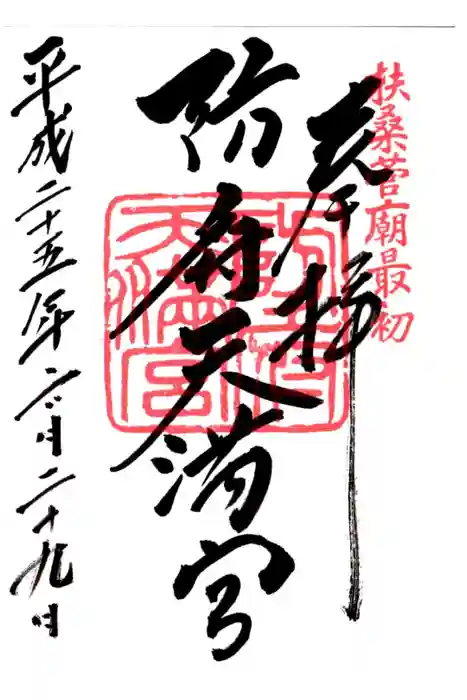 扶桑菅廟最初
奉拝
防府天満宮
防府
天満宮
平成二十五年月二十九日